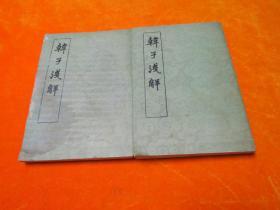 韓子淺解
韓子淺解